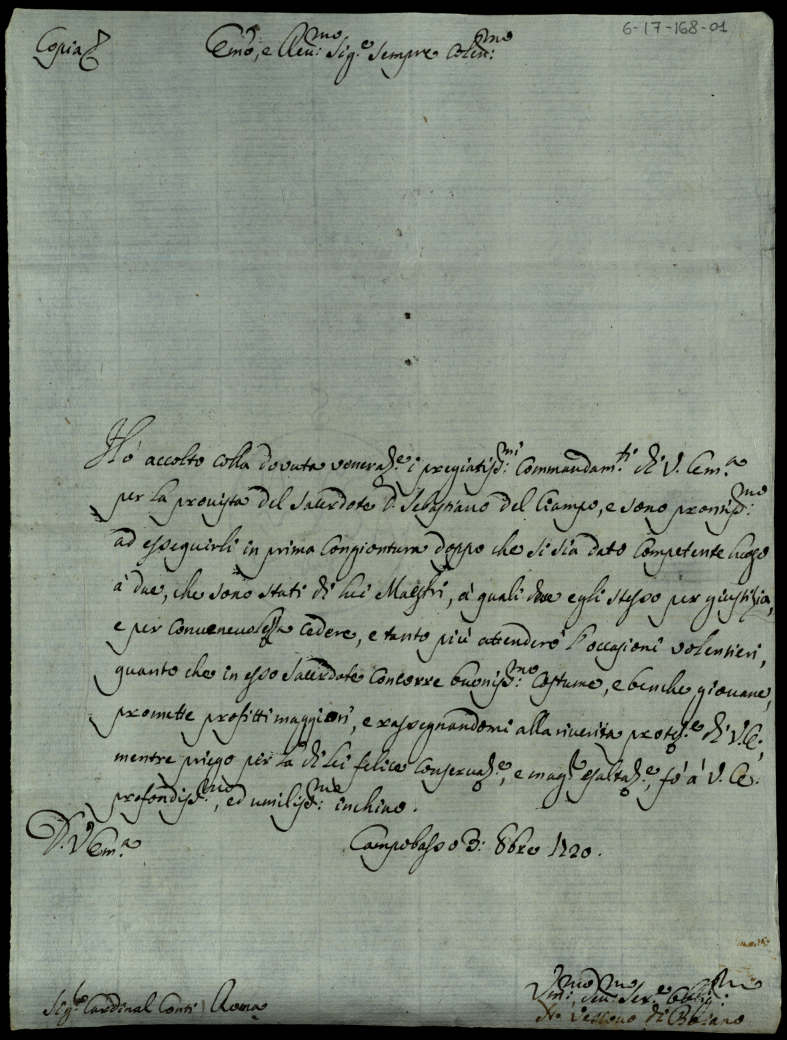 6-17-168-01
Copia
Emo, e Reu:mo Sig:e sempre Colen:mo
Hò accolto colla dovuta veneraz:e i pregiatiss:mi Commandam:ti di V. Em:a
per la provista del Sacerdote D. Sebastiano del Ciampo, e sono prontiss:mo
ad esseguirli in prima Congiontura doppo che si sia dato Competente luogo
à due, che sono stati di lui Maestri, à quali deve egli stesso per giustizia,
e per Convenevolezza cedere, e tanto più attenderò l'occasioni volentieri,
quanto che in esso Sacerdote Concorre buoniss:mo Costume, e benche giovane,
promette profitti maggiori, e rassegnandomi alla riverita protez:e di V. E:,
mentre priego per la di lei felice Conservaz:e, e mag:r esaltaz:e, fò à V. E:
profondiss:mo, ed umiliss:mo inchino.
D. V. Em:a
Campobasso 3: 8bre 1720.
Sig:r Cardinal Conti Roma
Um:mo Deu:mo Ser:e Oblig:mo
N. Vescovo di Boiano